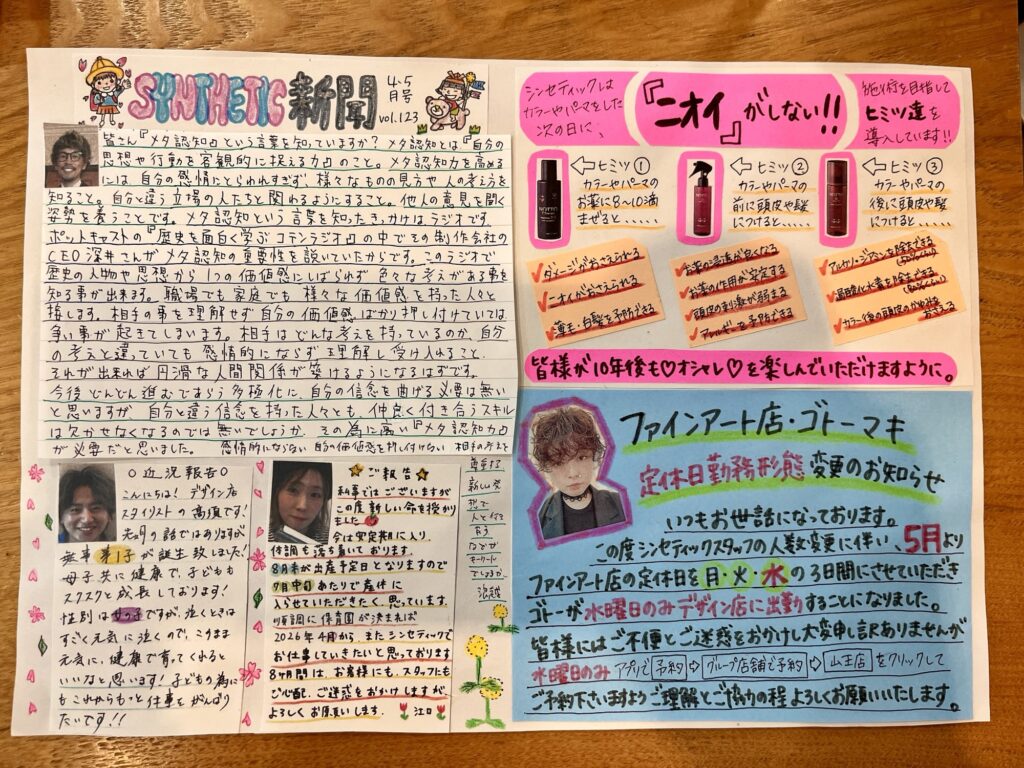 SYNTHETIC新聞
4.5月号
vol.123
皆さん『メタ認知』という言葉を知っていますか？メタ認知とは『自分の
思想や行動を客観的に捉える力』のこと。メタ認知力を高める
には自分の感情にとらわれすぎず様々なものの見方や人の考え方を
知ること。自分と違う立場の人たちと関わるようにすること。他人の意見を聞く
姿勢を養うことです。メタ認知という言葉を知ったきっかけはラジオです
ポットキャストの『歴史を面白く学ぶコテンラジオ』の中でその制作会社の
CEO深井さんがメタ認知の重要性を説いていたからです。このラジオで
歴史の人物や思想から1つの価値感にしばられず色々な考えがある事を
知る事が出来ます。職場でも家庭でも様々な価値感を持った人々と
接します。相手の事を理解せず自分の価値感ばかり押し付けていては
争い事が起きてしまいます。相手はどんな考えを持っているのか、自分
の考えと違っていても感情的にならず理解し受け入れること、
それが出来れば円滑な人間関係が築けるようになるはずです。
今後どんどん進むであろう多極化に、自分の信念を曲げる必要は無い
と思いますが自分と違う信念を持った人々とも、仲良く付き合うスキル
は欠かせなくなるのでは無いでしょうか。その為に高い『メタ認知力』
が必要だと思いました。 感情的にならない 自分の価値感を押し付けない 相手の考えを
尊重する
人と付き
合う
なでが
キーワード
でしょうか。
浪越
○近況報告○
こんにちは！デザイン店
スタイリストの高須です！
先月の話ではありますが
無事第1子が誕生致しました！
母子共に健康で、子どもも
スクスクと成長しております！
性別は女の子ですが、泣くときは
すごく元気に泣くので、このまま
元気に、健康で育ってくれると
いいなと思います！子どもの為に
もこれからもっと仕事をがんばり
たいです！！
☆ご報告☆
私事ではございますが
この度新しい命を授かり
ました
今は安定期に入り、
体調も落ち着いております
8月末が出産予定日となりますので
7月中旬あたりで産休に
入らせていただきたく思っています。
順調に保育園が決まれば
2026年4月からまたシンセティックで
お仕事していきたいと思っております
8ヶ月間は、お客様にも、スタッフにも
ご心配、ご迷惑をおかけしますが、
よろしくお願いします。 江口
シンセティックは
カラーやパーマをした
次の日に、
『ニオイ』がしない!!
施術を目指して
ヒミツ達を
導入しています!!
←ヒミツ①
カラーやパーマの
お薬に8〜10滴
まぜると……
✓ダメージがおさえられる
✓ニオイがおさえられる
✓薄毛・白髪を予防できる
←ヒミツ②
カラーやパーマの
前に頭皮や髪
につけると……
✓お薬の浸透が良くなる
✓お薬の作用が安定する
✓頭皮の刺激が弱まる
✓アレルギーを予防できる
←ヒミツ③
カラーやパーマの
後に頭皮や髪
につけると……
✓アルカリ・ジアミンを除去できる
✓過酸化水素を除去できる
✓カラー後の頭皮のかゆみを
おさえる
皆様が10年後も♡オシャレ♡を楽しんでいただけますように。
ファインアート店・ゴトーマキ
定休日勤務形態変更のお知らせ
いつもお世話になっております。
この度シンセティックスタッフの人数変更に伴い、5月より
ファインアート店の定休日を月・火・水の3日間にさせていただき
ゴトーが水曜日のみデザイン店に出勤することになりました。
皆様にはご不便とご迷惑をおかけし大変申し訳ありませんが
水曜日のみアプリで予約→グループ店舗で予約→山王店をクリックして
ご予約下さいますようご理解とご協力の程よろしくお願いいたします。